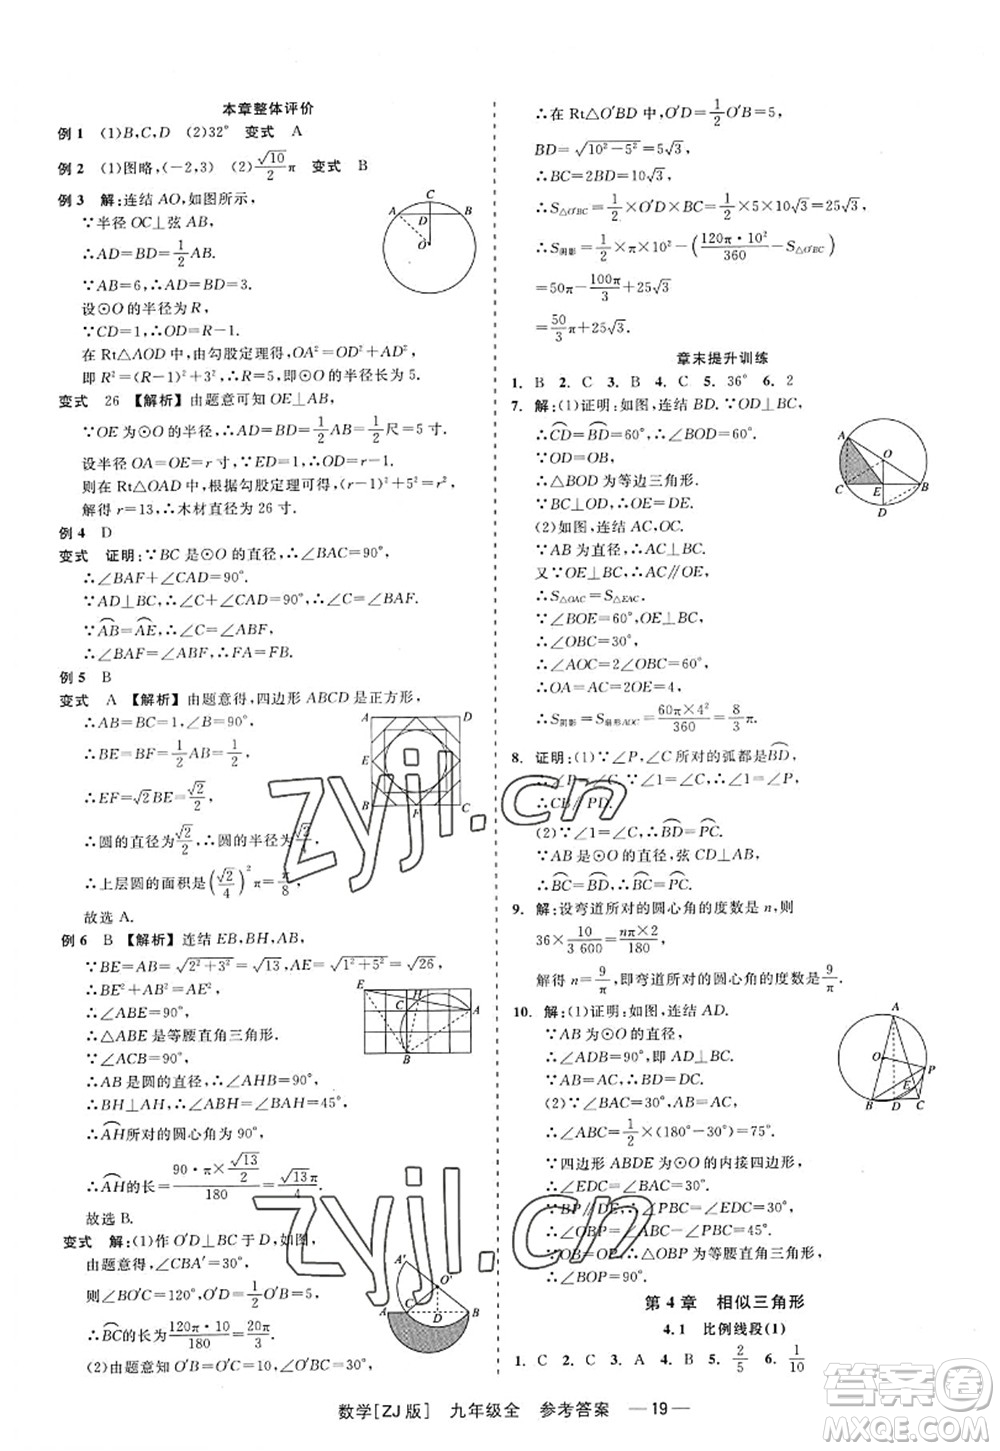 本章整体评价
例1 (1)B,C,D (2)32° 变式 A
例2 (1)图略,(-2,3) (2)√10/2 π 变式 B
例3 解:连结 AO,如图所示,
∵半径 OC⊥弦 AB,
∴AD=BD=1/2 AB.
∵AB=6,∴AD=BD=3.
设⊙O 的半径为 R,
∵CD=1,∴OD=R-1.
在 Rt△AOD 中,由勾股定理得,OA²=OD²+AD²,
即 R²=(R-1)²+3²,∴R=5.∴⊙O 的半径长为 5.
变式 26 【解析】由题意可知 OE⊥AB,
∵OE 为⊙O 的半径,∴AD=BD=1/2 AB=1/2 尺=5 寸,
设半径 OA=OE=r 寸,∵ED=1,∴OD=r-1,
则在 Rt△OAD 中,根据勾股定理可得,(r-1)²+5²=r²,
解得 r=13,∴木材直径为 26 寸.
例4 D
变式 证明:∵BC 是⊙O 的直径,∴∠BAC=90°,
∴∠BAF+∠CAD=90°.
∵AD⊥BC,∴∠C+∠CAD=90°,∴∠C=∠BAF.
∵AB=AE,∴∠C=∠ABF,
∴∠BAF=∠ABF,∴AF=BF.
例5 B
变式 A 【解析】由题意得,四边形 ABCD 是正方形,
∴AB=BC=1,∠B=90°.
∴BE=BF=1/2 AB=1/2,
∴EF=√2 BE=√2/2,
∴圆的直径为 √2/2,∴圆的半径为 √2/4,
∴上层圆的面积是(√2/4)²π=π/8,
故选 A.
例6 B 【解析】连结 EB,BH,AB,
∵BE=AE=√(2²+3²)=√13,AB=√(1²+5²)=√26,
∴BE²+AE²=AB²,
∴∠AEB=90°,
∴△ABE 是等腰直角三角形,
∵∠ACB=90°,
∴AB 是圆的直径,∴∠AHB=90°,
∴BH⊥AE,∴∠ABH=∠EBH=45°,
∴AH所对的圆心角为 90°,
∴AH的长=(90·π×√13/2)/180=√13π/4.
故选 B.
变式 解:(1)作 O′D⊥BC 于 D,如图,
由题意得,∠CBA′=30°,
则∠BO′C=120°,O′D=1/2 O′B=5,
∴BC的长为 (120π·10)/180=20π/3.
(2)由题意知 O′B=O′C=O′A=10,
∴在 Rt△O′BD 中,O′D=1/2 O′B=5,
BD=√(10²-5²)=5√3,
∴BC=2BD=10√3,
∴S△O′BC=1/2×O′D×BC=1/2×5×10√3=25√3,
∴S阴影=1/2×π×10²-(120π·10²/360-S△O′BC)
=50π-100π/3+25√3
=50/3 π+25√3.
章末提升训练
1. B 2. C 3. B 4. C 5. 36° 6. 2
7. 解:(1)证明:如图,连结 BD.∵OD⊥BC,
∴CD=BD=60°,∴∠BOD=60°,
∵OD=OB,
∴△OBD 为等边三角形,
∵BC⊥OD,∴OE=DE.
(2)如图,连结 AC,OC.
∵AB 为直径,∴AC⊥BC.
又∵OE⊥BC,∴AC∥OE,
∴S△OAC=S△EAC.
∵∠BOE=60°,
∴∠OBC=30°,
∴∠AOC=2∠OBC=60°,
∴OA=AC=2OE=4,
∴S阴影=S扇形AOC=60π×4²/360=8/3 π.
8. 证明:(1)∵∠P,∠C 所对的弧都是BD,
∴∠P=∠C.∵∠1=∠C,∴∠1=∠P,
∴CB∥PD.
(2)∵∠1=∠C,∴BD=PC.
∵AB 是⊙O 的直径,弦 CD⊥AB,
∴BC=BD,∴BC=PC.
9. 解:设弯道所对的圆心角的度数是 n,则
36×10/3 600=nπ×2/180,
解得 n=9/π,即弯道所对的圆心角的度数是 9/π.
10. 解:(1)证明:如图,连结 AD.
∵AB 为⊙O 的直径,
∴∠ADB=90°,即 AD⊥BC.
∵AB=AC,∴BD=CD.
(2)∵∠BAC=30°,AB=AC,
∴∠ABC=1/2×(180°-30°)=75°,
∵四边形 ABDE 为⊙O 的内接四边形,
∴∠EDC=∠BAC=30°,
∵BP∥DE,∴∠PBC=∠EDC=30°,
∴∠OBP=∠ABC-∠PBC=45°.
∵OB=OP,∴△OBP 为等腰直角三角形,
∴∠BOP=90°.
第4章 相似三角形
4.1 比例线段(1)
1. C 2. C 3. A 4. B 5. 2/5 6. 1/10
数学[ZJ版] 九年级全 参考答案 —19—
zyjl.cn
zyjl.cn
答案圈
MXQE.COM